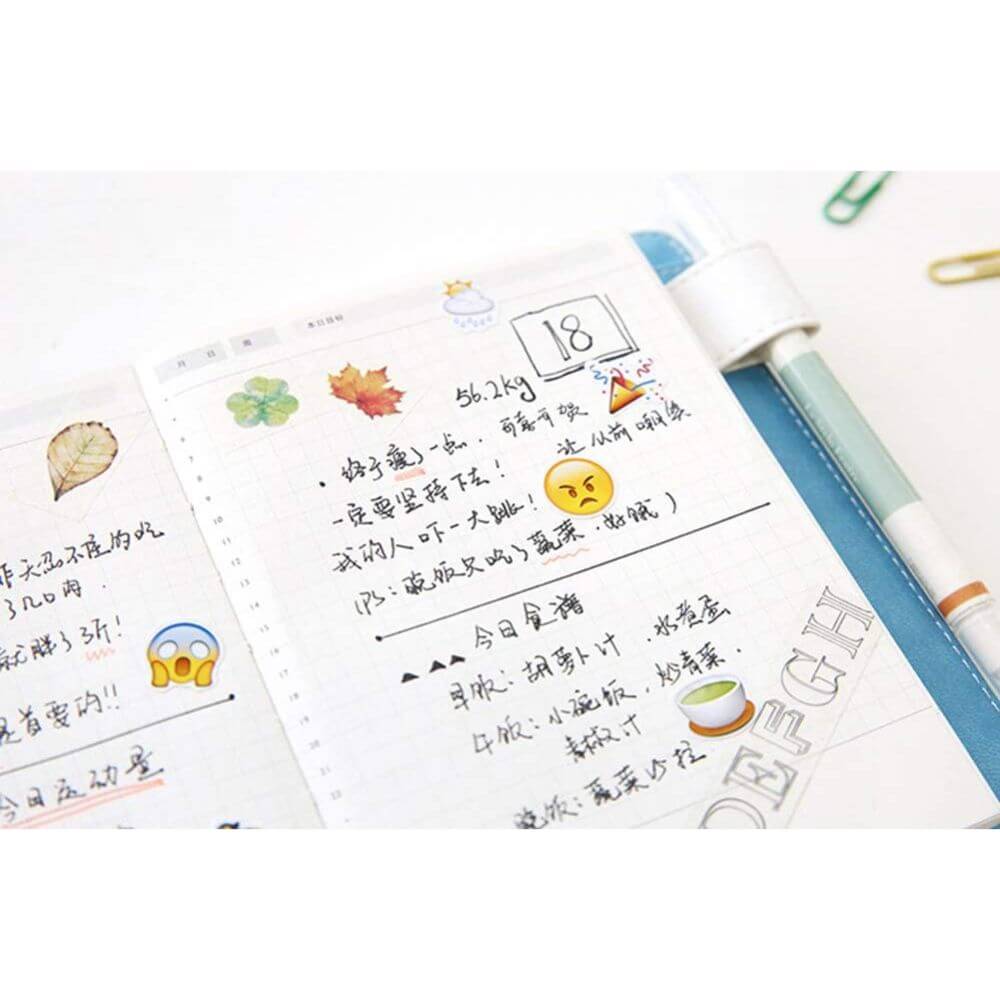 昨天忍不住的吃
了几口肉.
就胖了3斤!
是首要的!!
今日运动量
月 日 周 本日目标
18
56.2kg
· 终于瘦了一点. 可喜可贺
一定要坚持下去! 让从前嘲笑
我的人吓一大跳!
(PS: 晚饭只吃了蔬菜. 好饿)
今日食谱
早饭: 胡萝卜汁. 水煮蛋
午饭: 小碗饭. 炒青菜.
青椒汁
晚饭: 蔬菜沙拉
7
8
9
10
11
12
13
14
15
16
17
18
19
20
21
22
DEFGH